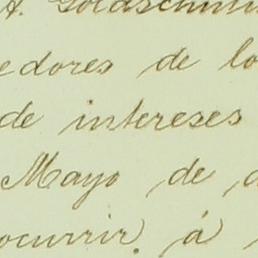 A. Goldschmidt
edores de lo
de intereses
Mayo de
ocurrir á